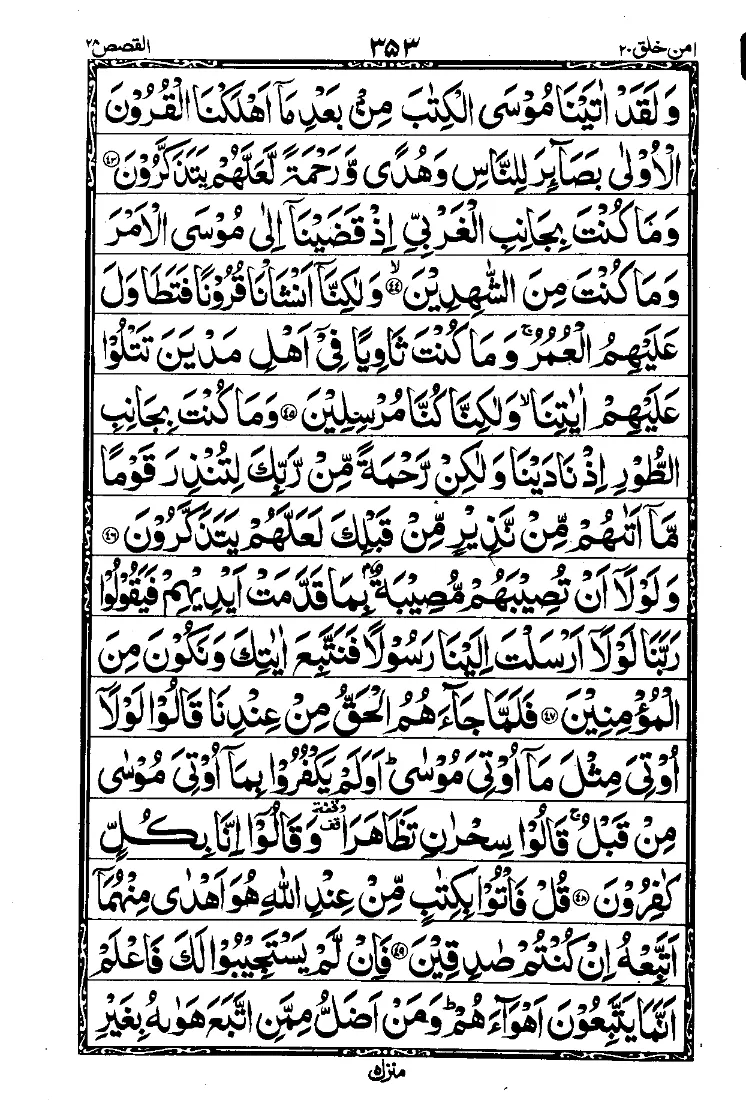 امن خلق ۲۰ ۳۵۳ القصص ۲۸
وَلَقَدْ اٰتَيْنَا مُوْسَى الْكِتٰبَ مِنْۢ بَعْدِ مَاۤ اَهْلَكْنَا الْقُرُوْنَ
الْاُوْلٰى بَصَآئِرَ لِلنَّاسِ وَهُدًى وَّرَحْمَةً لَّعَلَّهُمْ يَتَذَكَّرُوْنَ ﴿۴۳﴾
وَمَا كُنْتَ بِجَانِبِ الْغَرْبِيِّ اِذْ قَضَيْنَاۤ اِلٰى مُوْسَى الْاَمْرَ
وَمَا كُنْتَ مِنَ الشّٰهِدِيْنَ ﴿۴۴﴾ۙ وَلٰكِنَّاۤ اَنْشَاْنَا قُرُوْنًا فَتَطَاوَلَ
عَلَيْهِمُ الْعُمُرُ ۚ وَمَا كُنْتَ ثَاوِيًا فِيْۤ اَهْلِ مَدْيَنَ تَتْلُوْا
عَلَيْهِمْ اٰيٰتِنَا ۙ وَلٰكِنَّا كُنَّا مُرْسِلِيْنَ ﴿۴۵﴾ وَمَا كُنْتَ بِجَانِبِ
الطُّوْرِ اِذْ نَادَيْنَا وَلٰكِنْ رَّحْمَةً مِّنْ رَّبِّكَ لِتُنْذِرَ قَوْمًا
مَّاۤ اَتٰىهُمْ مِّنْ نَّذِيْرٍ مِّنْ قَبْلِكَ لَعَلَّهُمْ يَتَذَكَّرُوْنَ ﴿۴۶﴾
وَلَوْلَاۤ اَنْ تُصِيْبَهُمْ مُّصِيْبَةٌۢ بِمَا قَدَّمَتْ اَيْدِيْهِمْ فَيَقُوْلُوْا
رَبَّنَا لَوْلَاۤ اَرْسَلْتَ اِلَيْنَا رَسُوْلًا فَنَتَّبِعَ اٰيٰتِكَ وَنَكُوْنَ مِنَ
الْمُؤْمِنِيْنَ ﴿۴۷﴾ فَلَمَّا جَآءَهُمُ الْحَقُّ مِنْ عِنْدِنَا قَالُوْا لَوْلَاۤ
اُوْتِيَ مِثْلَ مَاۤ اُوْتِيَ مُوْسٰى ؕ اَوَلَمْ يَكْفُرُوْا بِمَاۤ اُوْتِيَ مُوْسٰى
مِنْ قَبْلُ ۚ قَالُوْا سِحْرٰنِ تَظَاهَرَا وقفة قف وَقَالُوْۤا اِنَّا بِكُلٍّ
كٰفِرُوْنَ ﴿۴۸﴾ قُلْ فَاْتُوْا بِكِتٰبٍ مِّنْ عِنْدِ اللّٰهِ هُوَ اَهْدٰى مِنْهُمَاۤ
اَتَّبِعْهُ اِنْ كُنْتُمْ صٰدِقِيْنَ ﴿۴۹﴾ فَاِنْ لَّمْ يَسْتَجِيْبُوْا لَكَ فَاعْلَمْ
اَنَّمَا يَتَّبِعُوْنَ اَهْوَآءَهُمْ ؕ وَمَنْ اَضَلُّ مِمَّنِ اتَّبَعَ هَوٰىهُ بِغَيْرِ
منزل ۵